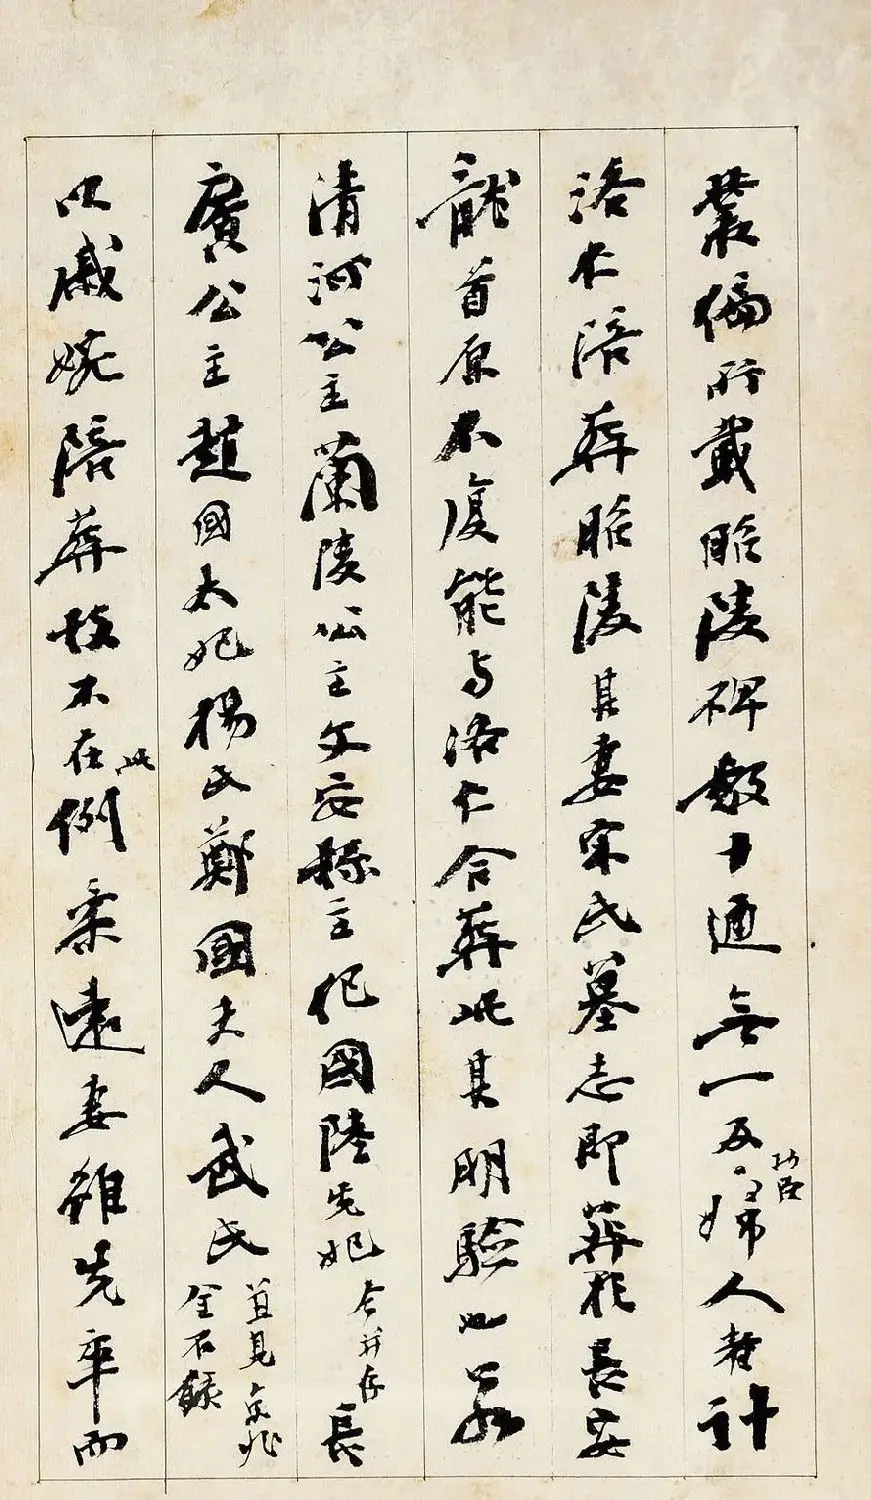 叢編所載昭陵碑數十通無一及功臣婦人者許
洛仁陪葬昭陵其妻宋氏墓志即葬於長安
龍首原不復能与洛仁合葬此其明驗也若
清河公主蘭陵公主文安縣主紀國陸先妃今并存長
廣公主趙國太妃楊氏鄭國夫人武氏並見京兆金石錄
以戚婉陪葬故不在此例柔遠妻雖先卒而